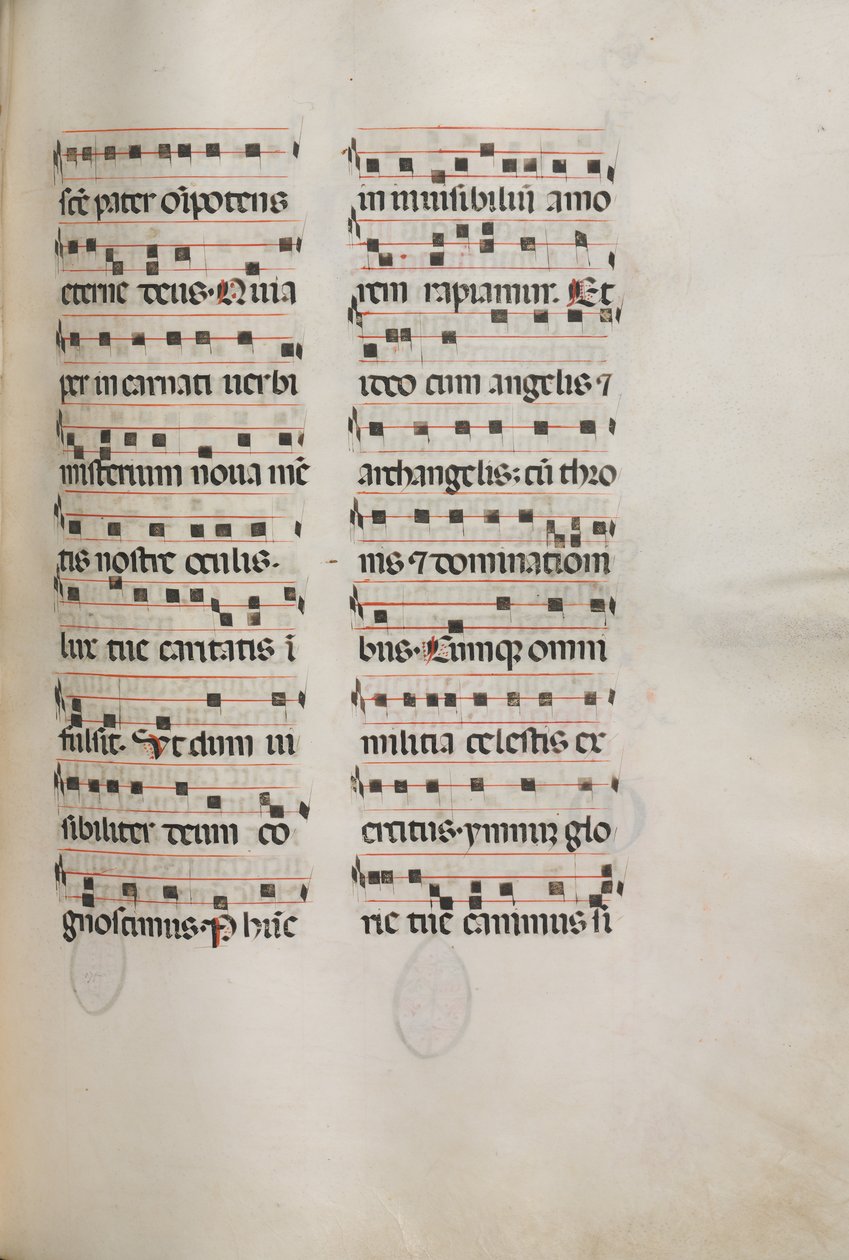 sc̄e pater om̄ipotens
eterne deus. Quia
per incarnati uerbi
misterium noua mē
tis nostre oculis.
lux tue caritatis ī
fulsit. Vt dum ui
sibiliter deum co
gnoscimus. P hūc
in inuisibiliū amo
rem rapiamur. Et
ideo cum angelis ⁊
archangelis; cū thro
nis ⁊ dominationi
bus. Cumqꝫ omni
militia celestis ex
ercitus. ymnuꝫ glo
rie tue canimus si